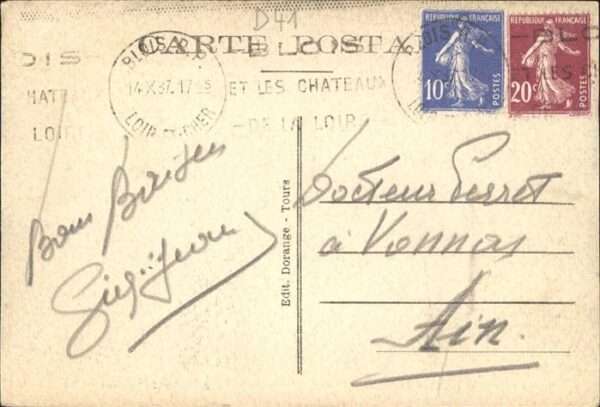 D41
CARTE POSTALE
BLOIS R.P.
14 X 37. 17 35
LOIR-ET-CHER
BLOIS
ET LES CHATEAUX
DE LA LOIRE
RÉPUBLIQUE FRANÇAISE
10c
POSTES
RÉPUBLIQUE FRANÇAISE
20c
POSTES
Bons Baisers
Edit. Dorange - Tours
Docteur Perret
à Vonnas
Ain.